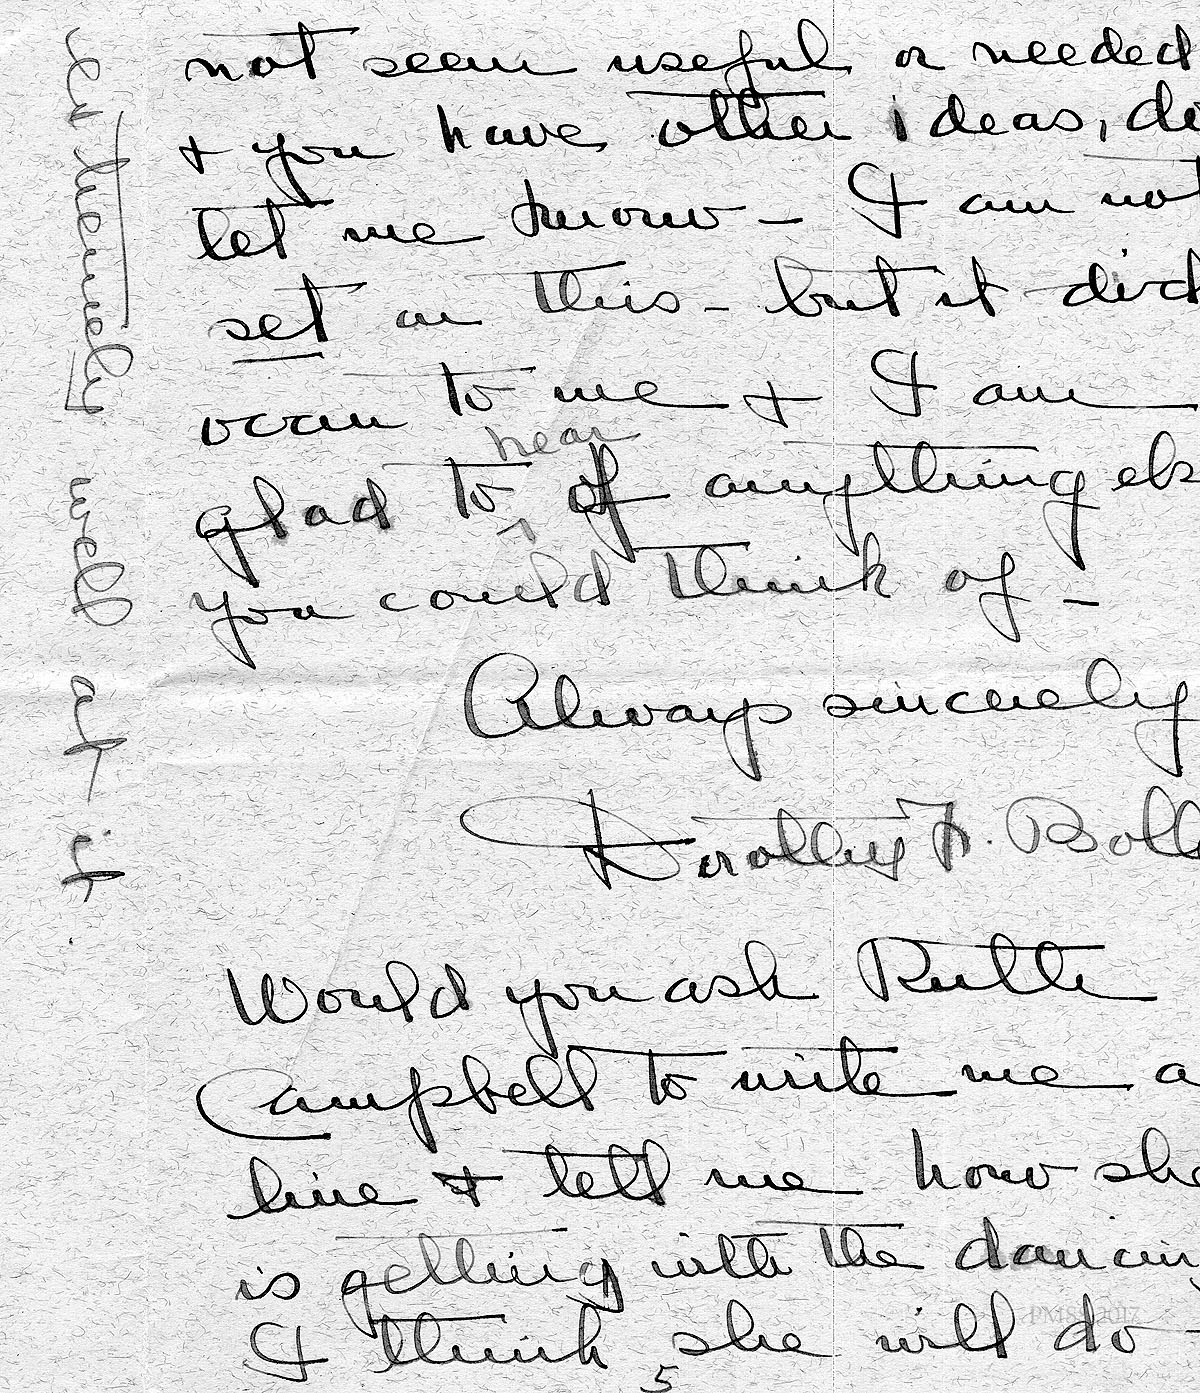 not seem useful or needed
+ you have other ideas, do
let me know - I am not
set on this - but it did
occur to me + I am
glad to hear of anything els
you could think of -
Always sincerely
Dorothy F. Boll
Would you ask Ruth
Campbell to write me a
line + tell me how she
is getting with the dancin
I think she will do
5
extremely well at it.
PMSS 2017